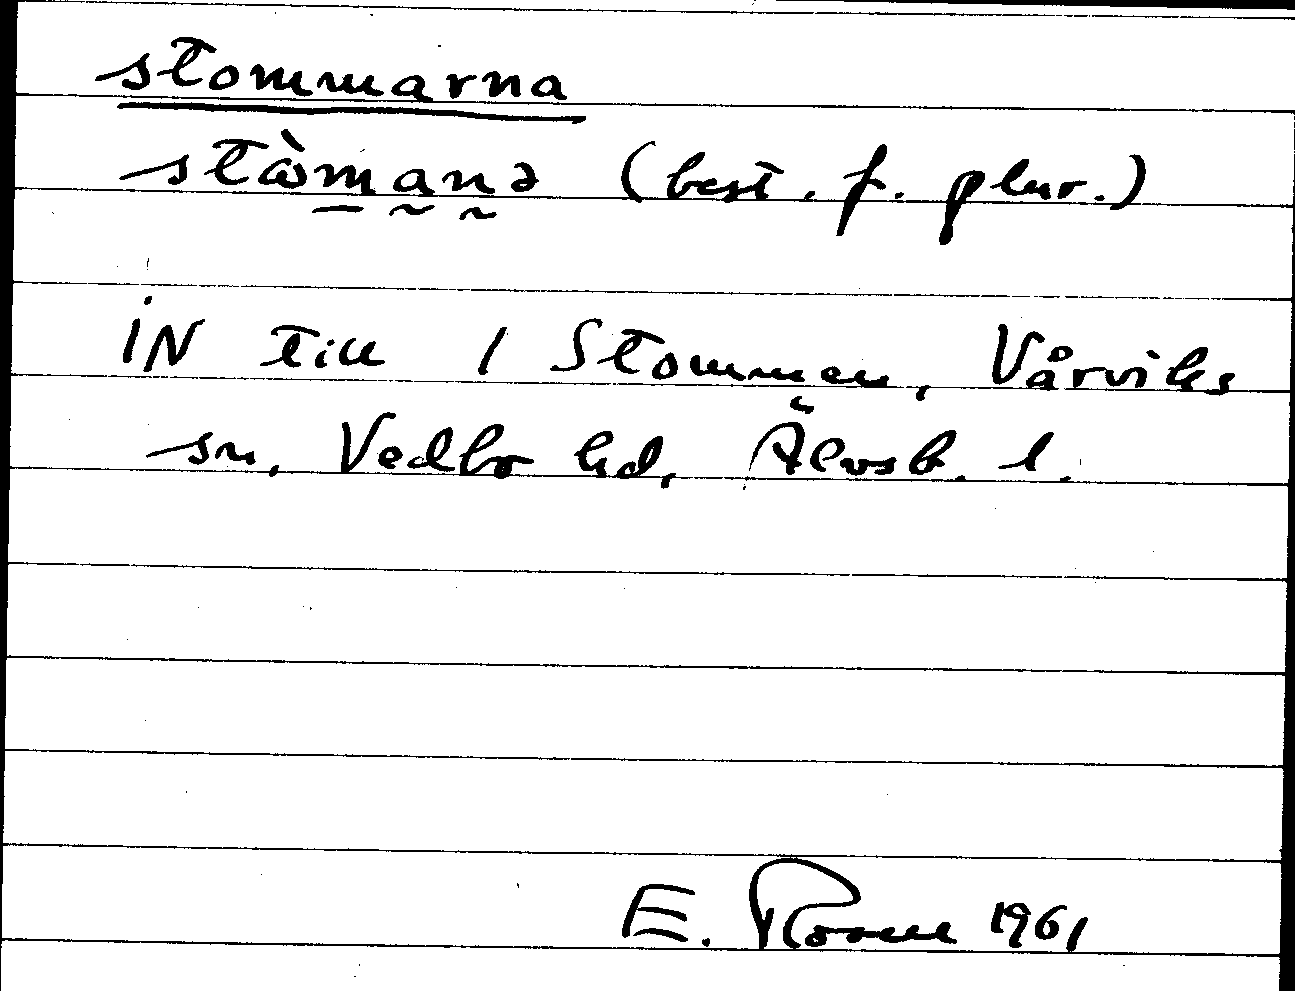 stommarna
stɷ̀m̱a̰n̰ə (best. f. plur.)
iN till 1 Stommen, Vårviks
sn, Vedbo hd, Älvsb. l.
E. 1961